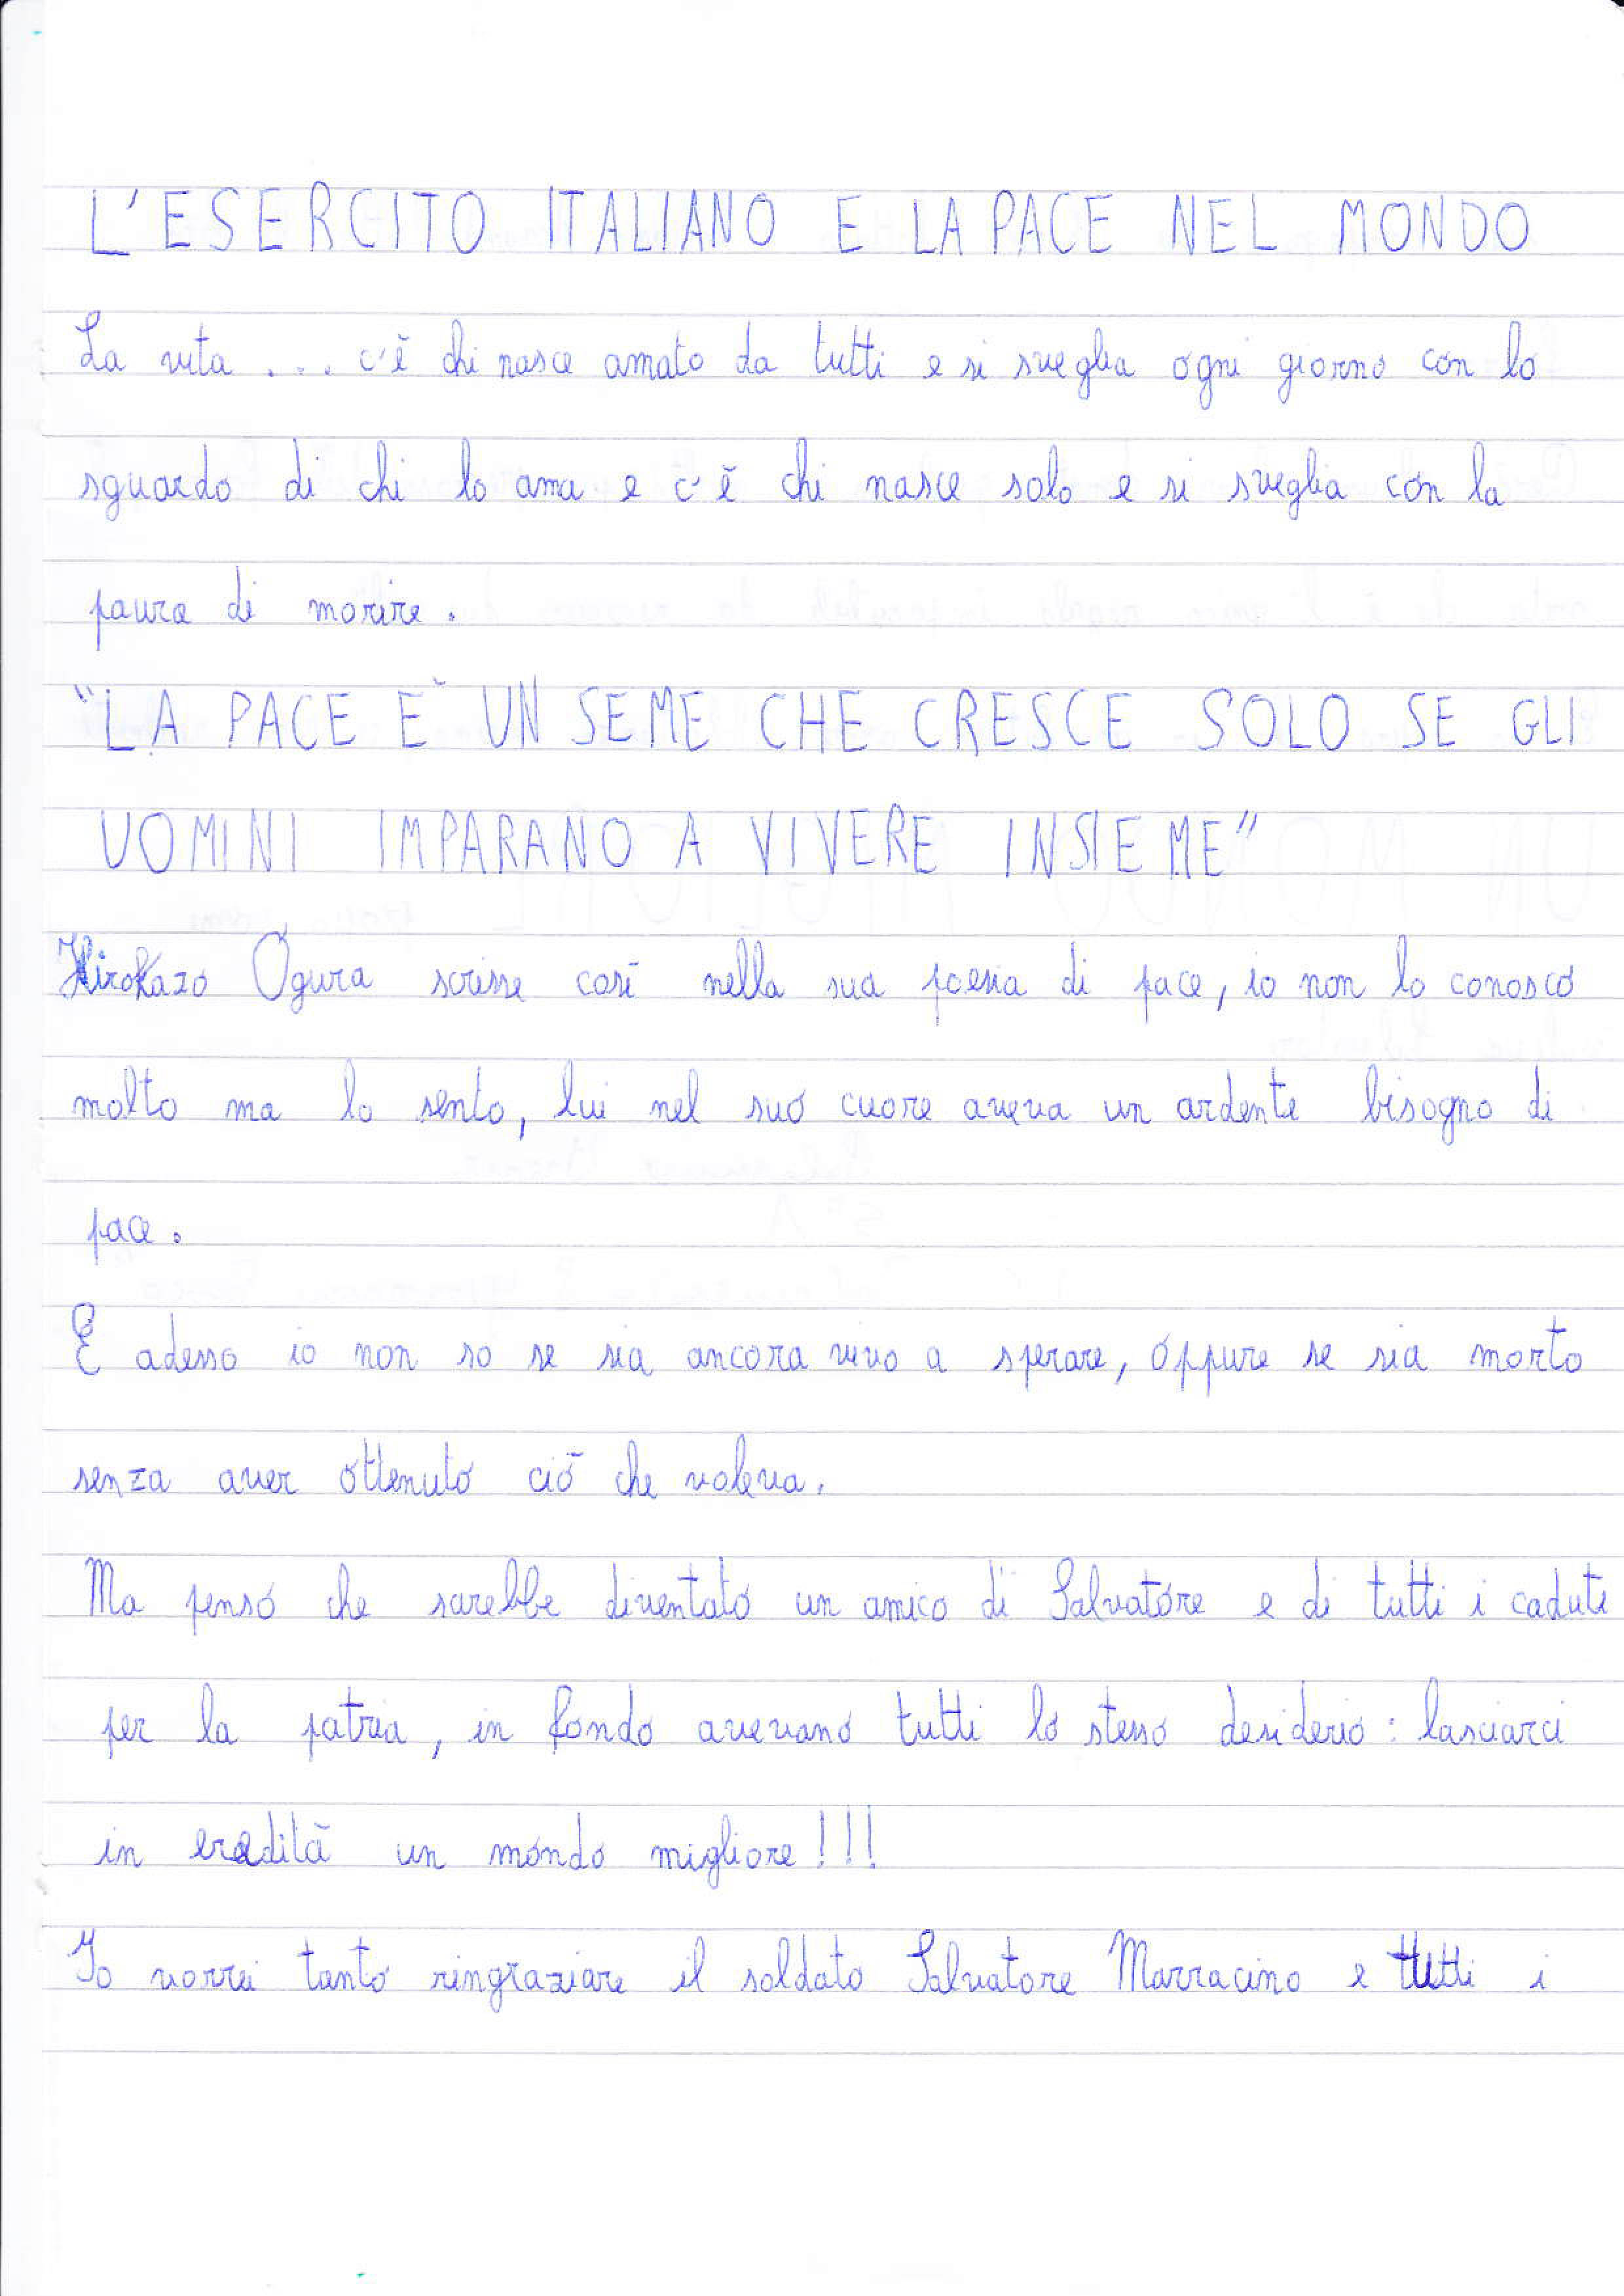 L'ESERCITO ITALIANO E LA PACE NEL MONDO
La vita ... c'è chi nasce amato da tutti e si sveglia ogni giorno con lo
sguardo di chi lo ama e c'è chi nasce solo e si sveglia con la
paura di morire.
"LA PACE E' UN SEME CHE CRESCE SOLO SE GLI
UOMINI IMPARANO A VIVERE INSIEME"
Hirokazo Ogura scrisse così nella sua poesia di pace, io non lo conosco
molto ma lo sento, lui nel suo cuore aveva un ardente bisogno di
pace.
E adesso io non so se sia ancora vivo a sperare, oppure se sia morto
senza aver ottenuto ciò che voleva.
Ma penso che sarebbe diventato un amico di Salvatore e di tutti i caduti
per la patria, in fondo avevano tutti lo stesso desiderio: lasciarci
in eredità un mondo migliore!!!
Io vorrei tanto ringraziare il soldato Salvatore Marracino e tutti i